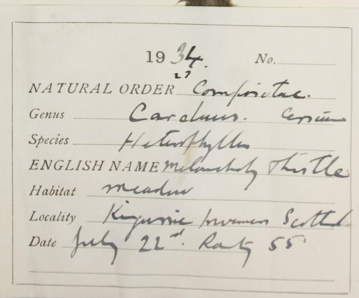 1934. No.
27
NATURAL ORDER Compositae.
Genus Carduus.
Species Heterophyllus
ENGLISH NAME Melancholy Thistle
Habitat meadow
Locality Kingussie Inverness Scotland
Date July 22nd. Rarity 55